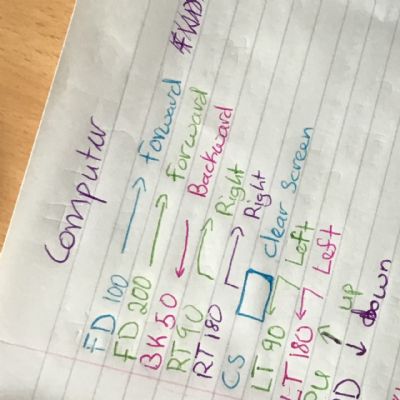 Computer
FD 100 → Forward
FD 200 → Forward
BK 50 ← Backward
RT 90 → Right
RT 180 → Right
CS Clear Screen
LT 90 ← Left
LT 180 ← Left
PU ↑ up
D ↓ down